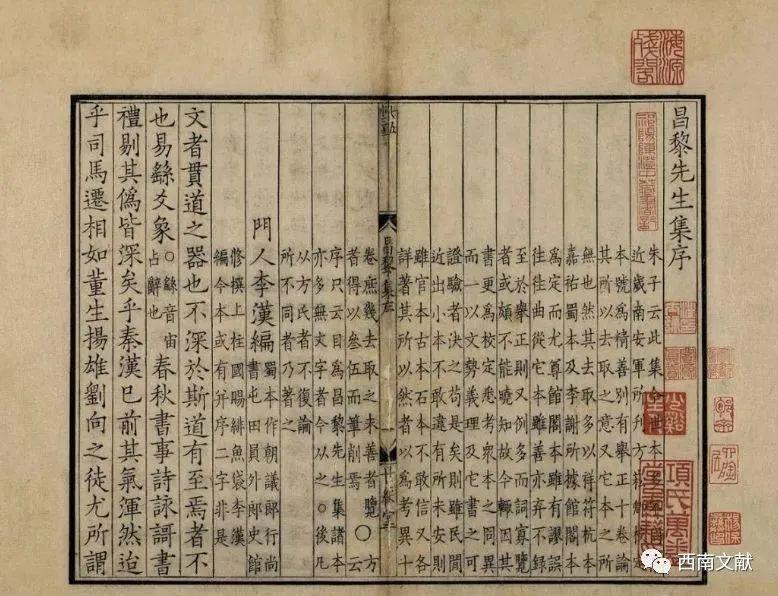 昌黎先生集序
朱子云此集今世本多
近歲南安軍所刋方崧卿校
本號為精善別有舉正十卷論
其所以去取之意又它本之所
無也然其去取多以祥符杭本
嘉祐蜀本及李謝所據館閣本
為定而尤尊館閣本雖有謬誤
往往曲從它本雖善亦弃不録
至於舉正則又例多而詞寡覽
者或頗不能曉知故今輒因其
書更為校定悉考衆本之同異
而一以文勢義理及它書之可
證驗者决之苟是矣則雖民間
近出小本不敢違有所未安則
雖官本古本石本不敢信又各
詳著其所以然者以為考異十
昌黎集序
一
卷庶幾去取之未善者覽
者得以叅伍而筆削焉○方云
序只云目為昌黎先生集諸本
亦多無文字者今以之○後凡
以方氏者不復論
所不同者乃著之
門人李漢編 蜀本作朝議郎行尚
書屯田員外郎史館
修撰上柱國賜緋魚袋李漢
編今本或有并序二字非是
文者貫道之器也不深於斯道有至焉者不
也易繇爻象○繇音宙占辭也春秋書事詩詠謌書
禮剔其僞皆深矣乎秦漢已前其氣渾然迨
乎司馬遷相如董生揚雄劉向之徒尤所謂
海源殘閣
祁陽陳澄中藏書記
西南文献